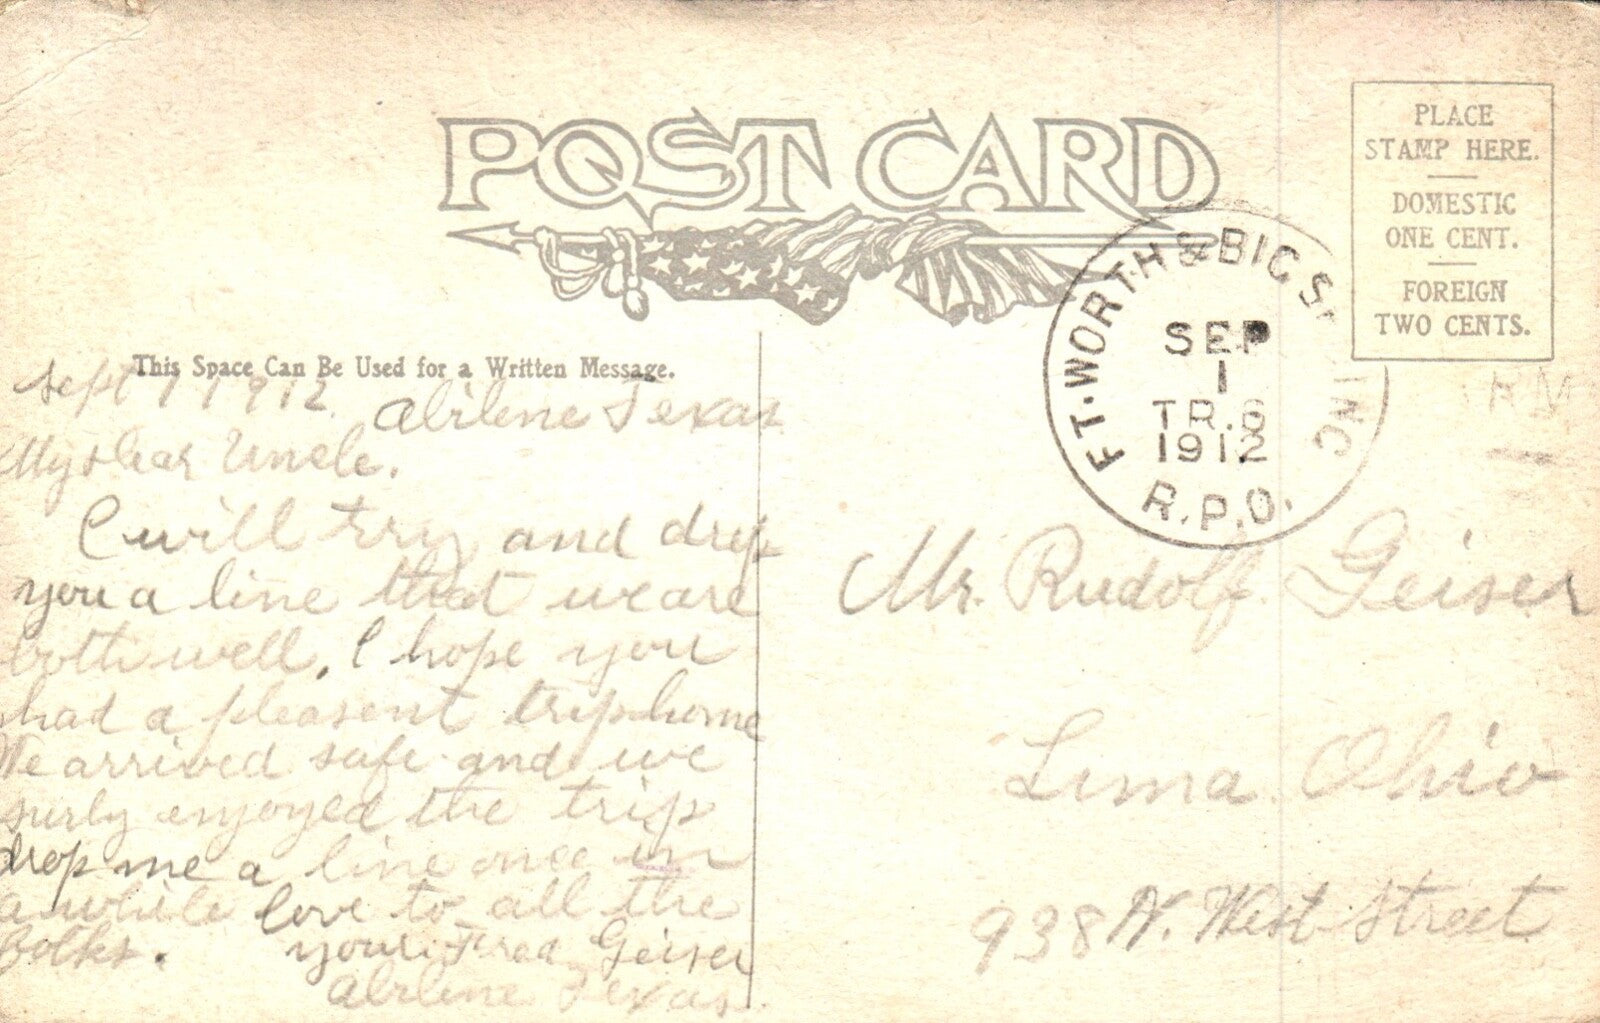 POST CARD
PLACE
STAMP HERE.
DOMESTIC
ONE CENT.
FOREIGN
TWO CENTS.
FT. WORTH & BIG S
SEP
1
TR.6
1912
R.P.O.
This Space Can Be Used for a Written Message.
Sept 1 1912. Abilene Texas
My dear Uncle.
I will try and drop
you a line that we are
both well. I hope you
had a pleasent trip home
We arrived safe and we
surly enjoyed the trip
drop me a line once in
a while love to all the
folks. your Fred Geiser
Abilene Texas.
Mr. Rudolf Geiser
Lima Ohio
938 N. West Street